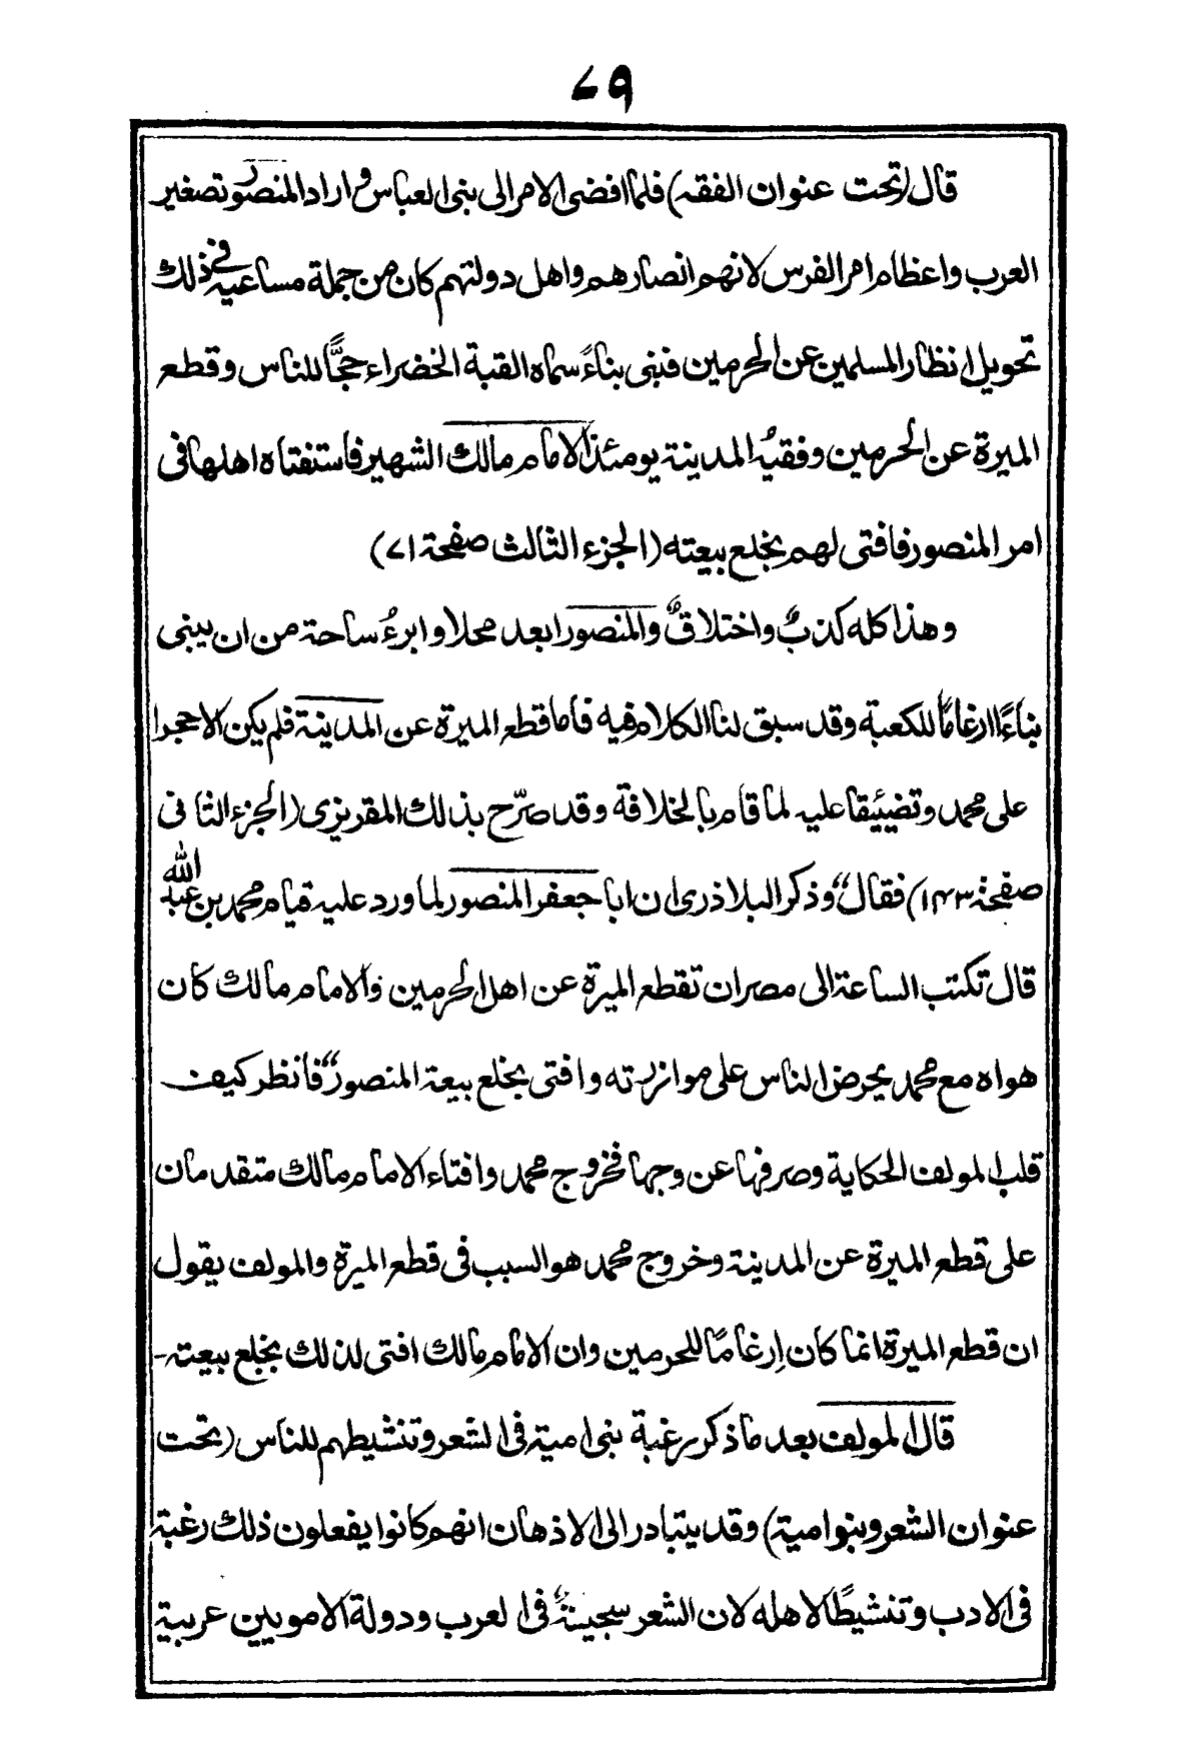 ۷۹
قال (تحت عنوان الفقه) فلما افضى الامر الى بنى العباس و اراد المنصور تصغير
العرب واعظام امر الفرس لانهم انصارهم واهل دولتهم كان من جملة مساعيه فى ذلك
تحويل انظار المسلمين عن الحرمين فبنى بناءً سماه القبة الخضراء حجًّا للناس وقطع
الميرة عن الحرمين وفقيهُ المدينة يومئذ الامام مالك الشهير فاستفتاه اهلها فى
امر المنصور فافتى لهم بخلع بيعته (الجزء الثالث صفحة ۷۱)
وهذا كله كذبٌ واختلاقٌ والمنصور ابعد محلا وابرءُ ساحة من ان يبنى
بناءًا ارغامًا للكعبة وقد سبق لنا الكلام فيه فأما قطع الميرة عن المدينة فلم يكن الاحجرا
على محمد وتضيّيقا عليه لما قام بالخلافة وقد صرّح بذلك المقريزى (الجزء الثانى
صفحة ۱۴۳) فقال “وذكر البلاذرى ان ابا جعفر المنصور لما ورد عليه قيام محمد بن عبد الله
قال تكتب الساعة الى مصر ان تقطع الميرة عن اهل الحرمين والامام مالك كان
هواه مع محمد يحرض الناس على موازرته وافتى بخلع بيعة المنصور“ فانظر كيف
قلب المولف الحكاية وصرفها عن وجهها فخروج محمد وافتاء الامام مالك متقدمان
على قطع الميرة عن المدينة وخروج محمد هو السبب فى قطع الميرة والمولف يقول
ان قطع الميرة انما كان إرغامًا للحرمين وان الامام مالك افتى لذلك بخلع بيعته-
قال المولف بعد ما ذكر رغبة بنى امية فى الشعر وتنشيطهم للناس (تحت
عنوان الشعر وبنوامية) وقد يتبادر الى الاذهان انهم كانوا يفعلون ذلك رغبة
فى الادب وتنشيطًا لاهله لان الشعر سجيةٌ فى العرب ودولة الامويين عربية